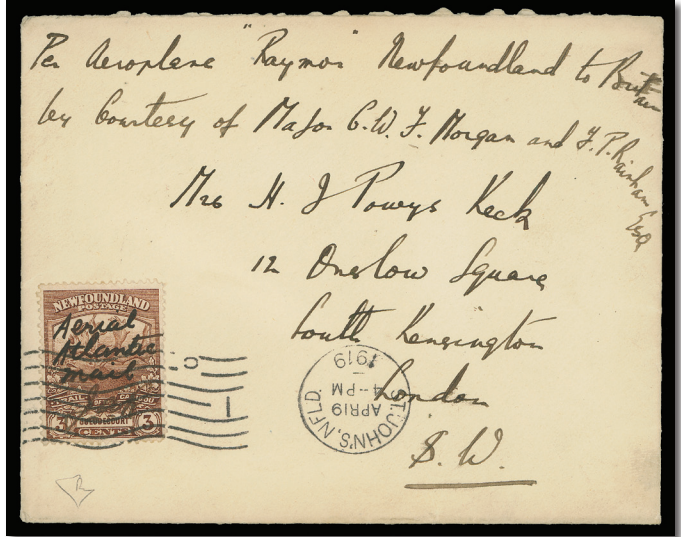 Per Aeroplane "Raymor" Newfoundland to Britain
by Courtesy of Major C.W.F. Morgan and F.P. Raynham Esq
Mrs H. J Powys Keck
12 Onslow Square
South Kensington
London
S.W.
NEWFOUNDLAND
POSTAGE
Aerial
Atlantic
mail
3 CENTS 3
ST. JOHN'S, NFLD.
APR 19
4-PM
1919
R